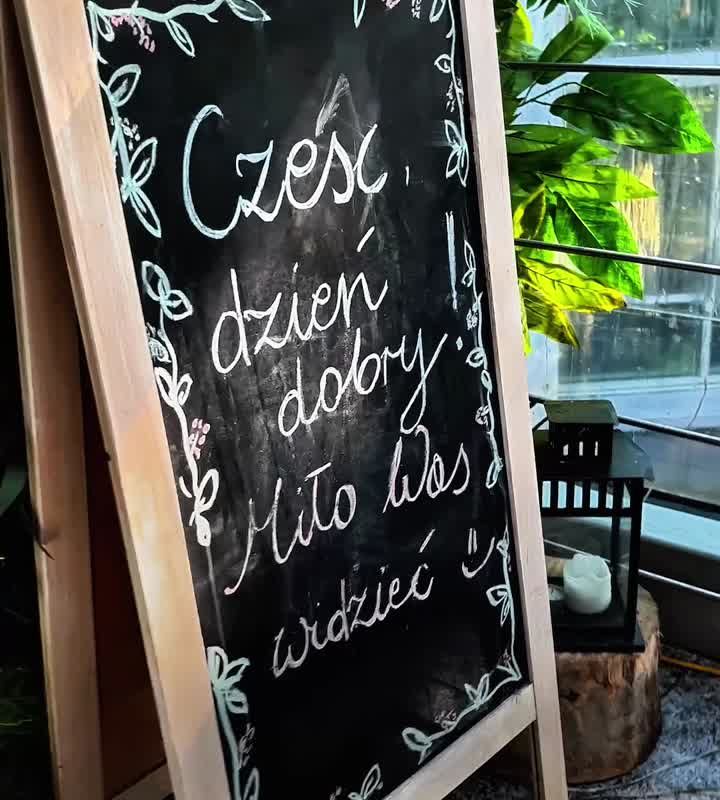 Cześć,
dzień
dobry!
Miło Was
widzieć :)